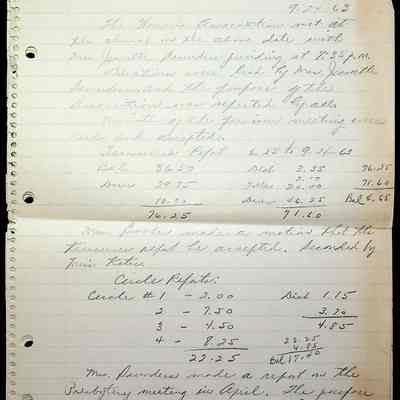 9-24-62
The Women's Association met at
the church on the above date with
Mrs. Jewette Saunders presiding at 7:35 p.m.
Devotions were lead by Mrs. Jewette
Saunders and the purpose of the
Association was repeated by all.
Minutes of the previous meeting were
read and accepted.
Treasurer's Report 6-25 to 9-24-62
36.50 Disb. 3.35 76.25
Dues 29.75 20.00 71.60
10.00 Dues 46.25 Bal 4.65
76.25 71.60
Mrs. made a motion that the
treasurer report be accepted. Seconded by
Miss Katie.
Circle Reports:
Circle #1 - 2.00 Disb 1.15
2 - 7.50 3.70
3 - 4.50 4.85
4 - 8.25 22.25
22.25 4.85
Bal 17.40
Mrs. Saunders made a report on the
Presbytery meeting in April. The purpose